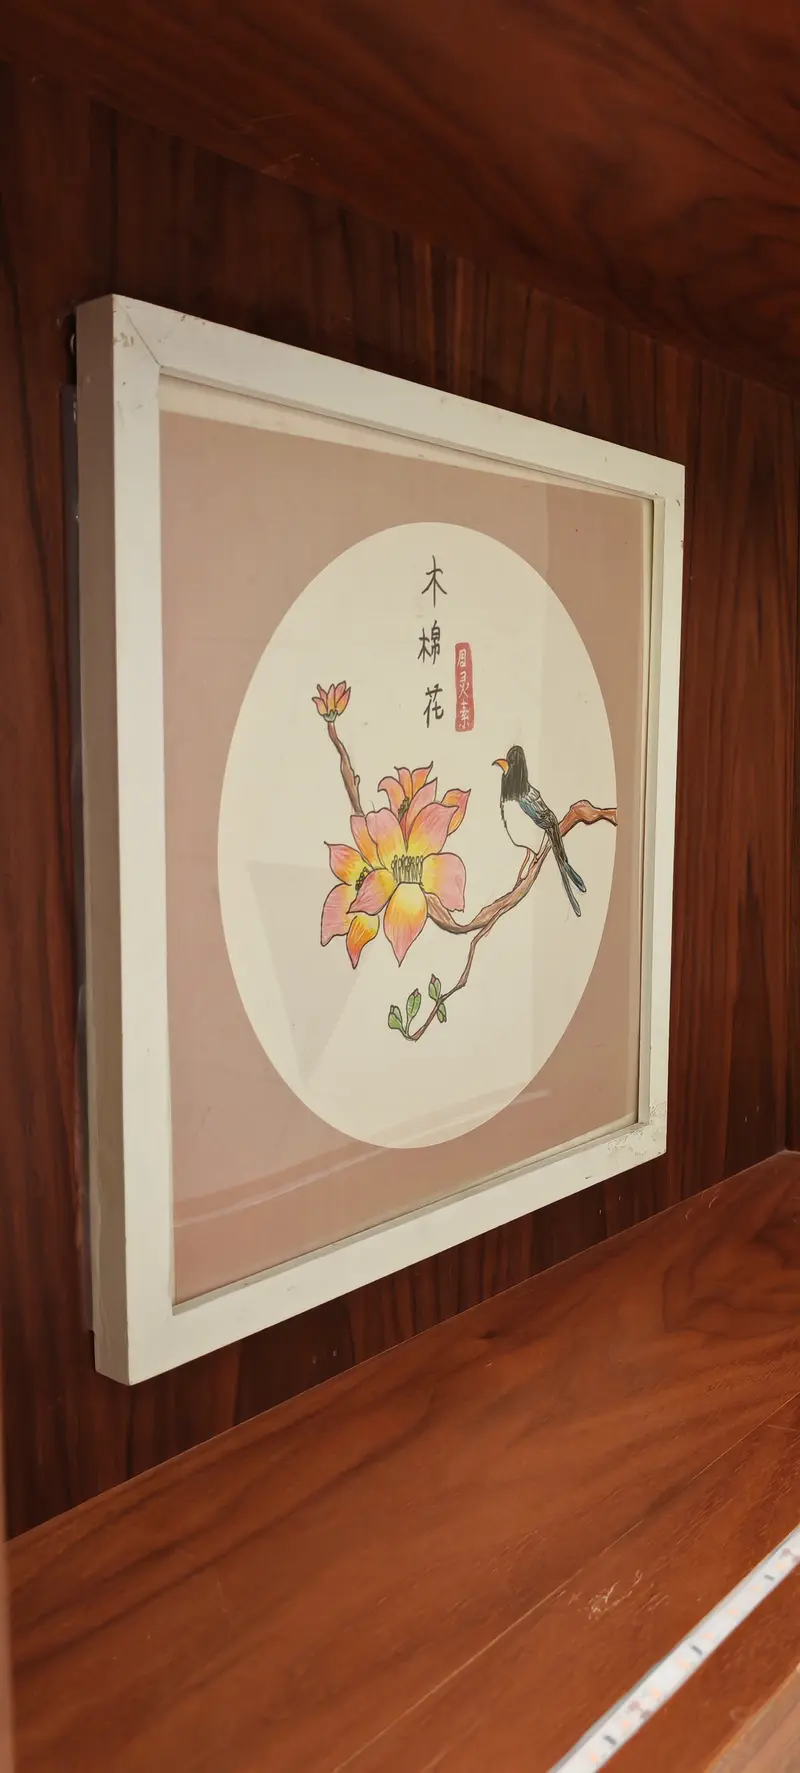 木棉花
周灵素